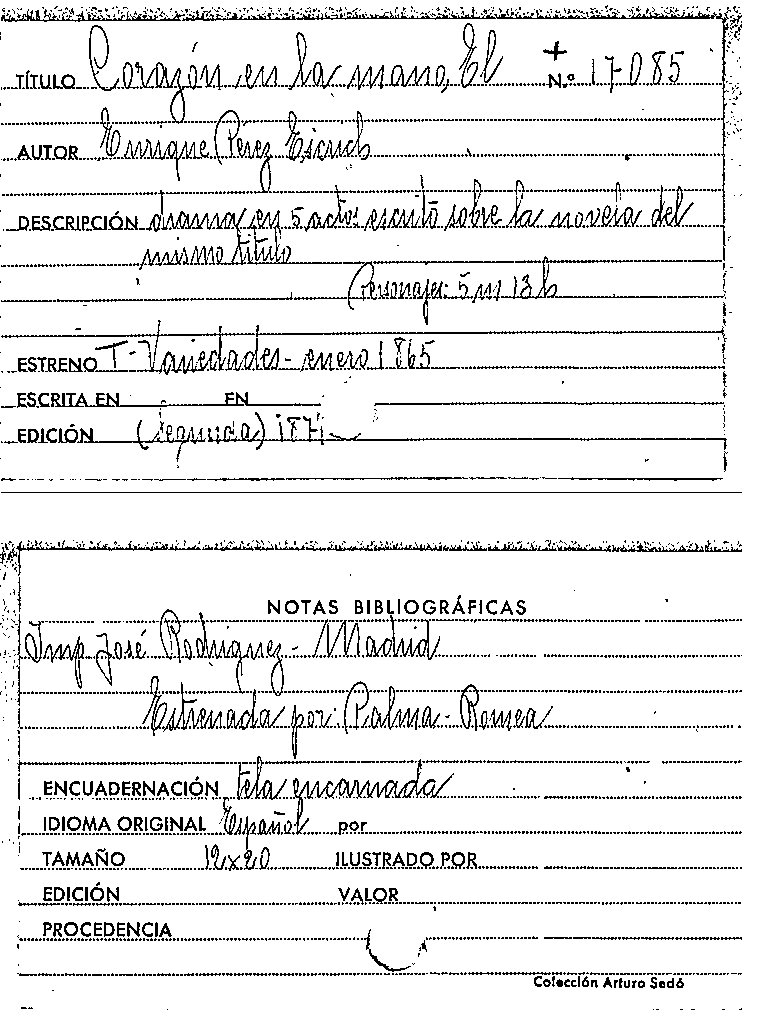 TÍTULO Corazón en la mano, El + N.º 17-085
AUTOR Enrique Pérez Escrich
DESCRIPCIÓN drama en 5 actos escrito sobre la novela del
mismo título
Personajes: 5 m 13 h
ESTRENO T- Variedades - enero 1865
ESCRITA EN EN
EDICIÓN (segunda) 1874
NOTAS BIBLIOGRÁFICAS
Imp José Rodriguez - Madrid
Estrenada por: Palma - Romea
ENCUADERNACIÓN tela encarnada
IDIOMA ORIGINAL Español por
TAMAÑO 12x20 ILUSTRADO POR
EDICIÓN VALOR
PROCEDENCIA
Colección Arturo Sedó